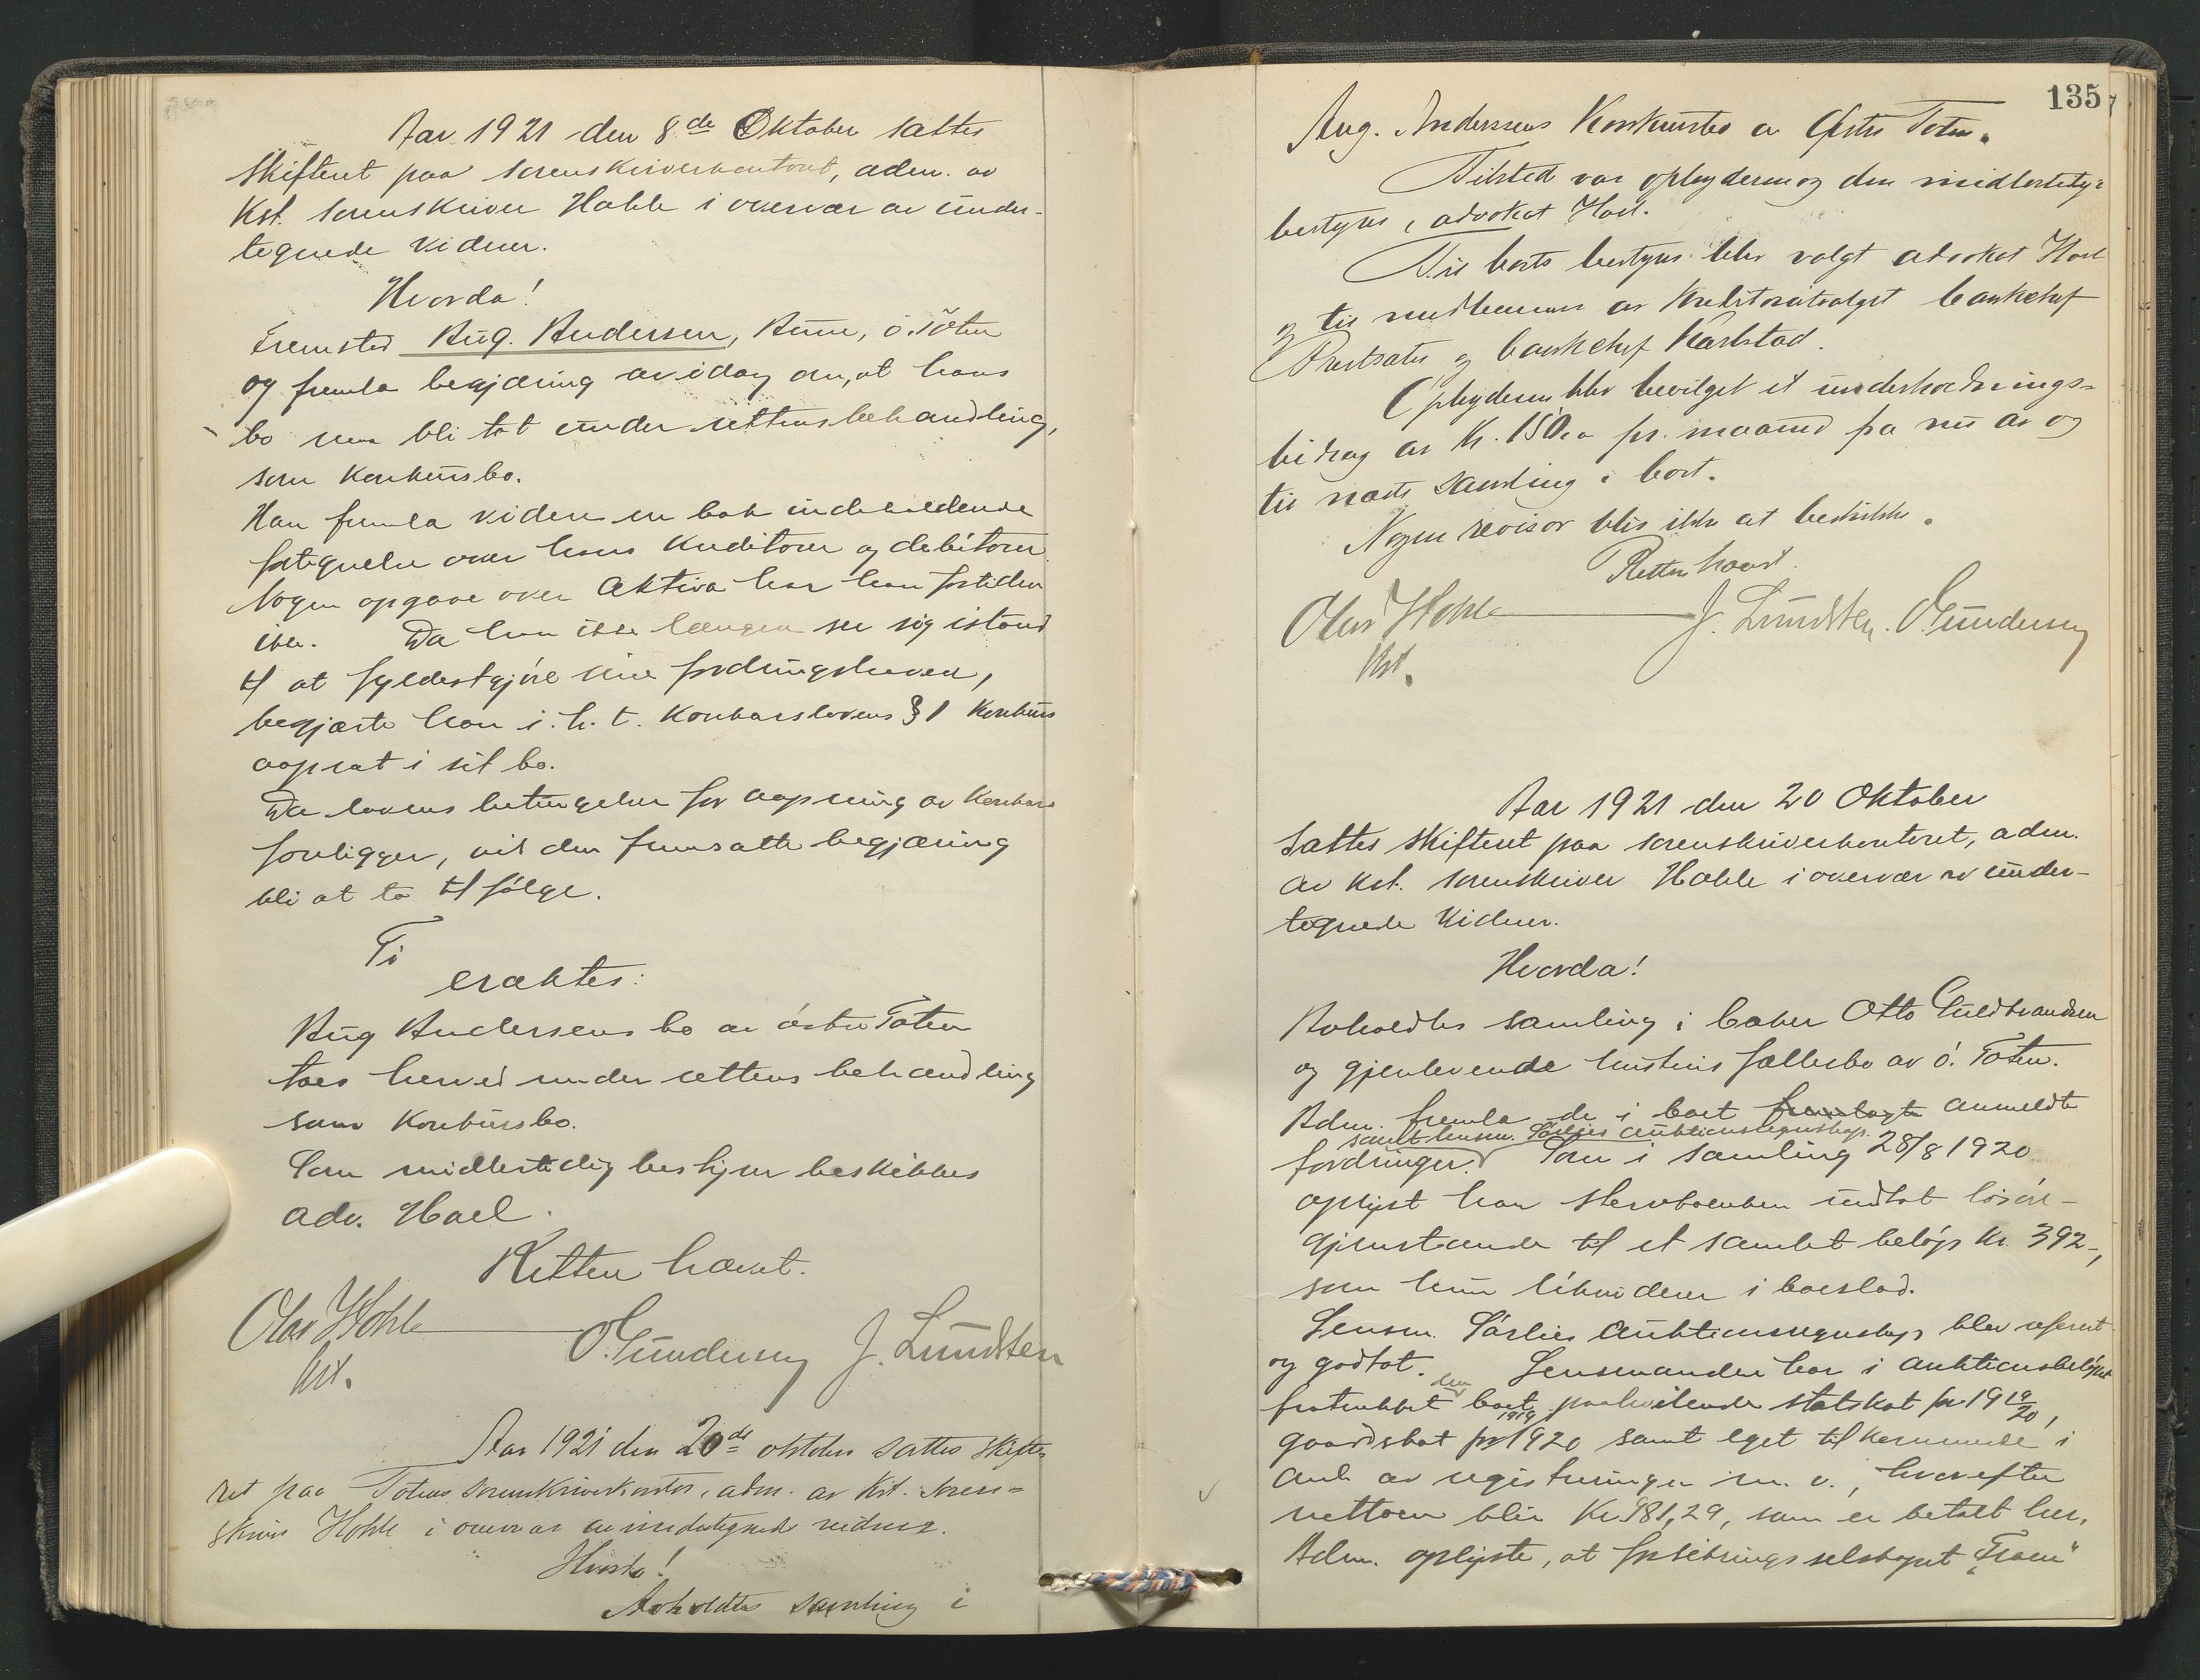 Aar 1921 den 8de Oktober sattes
skifteret paa sorenskriverkontoret, adm. av
Kst. sorenskriver Hohle i overvær av under-
tegnede vidner.
Hvorda!
Fremsted Aug. Andersen, ø. Toten
og fremla begjæring av idag om, at hans
bo maa bli tat under rettens behandling,
som konkursbo.
Han fremla videre en bok indeholdende
fortegnelse over hans kreditorer og debitorer
Nogen opgave over Aktiva har han fortiden
ikke. Da han ikke længer ser sig istand
til at fyldestgjøre sine fordringshavere,
begjærte han i. h. t. Konkurslovens § 1 Konkurs
aapnet i sit bo.
Da lovens betingelser for aapning av Konkurs
foreligger, vil den fremsatte begjæring
bli at ta til følge.
Ti
eragtes:
Aug Andersens bo av østre Toten
taes herved under rettens behandling
som Konkursbo.
Som midlertidig bestyrer beskikkes
adv. Hoel.
Retten hævet.
Olav Hohle O. Gundersen J. Lundsten
kst.
Aar 1921 den 20de oktober sattes skifte-
ret paa Totens sorenskriverkontor, adm. av kst. soren=
skriver Hohle i overvær av undertegnede vidner.
Hvorda!
Avholdtes samling i
135
Aug. Anderssens Konkursbo av Østre Toten.
Tilsted var opbyderen og den midlertidige
bestyrer, advokat Hoel.
Til boets bestyrer blev valgt advokat Hoel
og til medlemmer av kreditorutvalget bankchef
og bankchef Karlstad.
Opbyderen blev bevilget et underholdnings=
bidrag av kr. 150.00 pr. maaned fra nu av og
til næste samling i boet.
Nogen revisor blir ikke at beskikke.
Retten hævet.
Olav Hohle J. Lundsten. O. Gundersen
kst.
Aar 1921 den 20 Oktober
sattes skifteret paa sorenskriverkontoret, adm.
av kst. sorenskriver Hohle i overvær av under-
tegnede vidner.
Hvorda!
Avholdtes samling i baker Otto Guldbrandsen
og gjenlevende hustrus fællesbo av ø. Toten.
Adm. fremla de i boet fremlagte anmeldte
samt lensm. Sørlies auktionsregnskap.
fordringer. Som i samling 28/8 1920
oplyst har stervboenken utat løsøre-
gjenstande til et samlet beløp kr. 392,-,
som hun likviderer i boeslod.
Lensm. Sørlies Auktionsregnskap blev referert
og godtat. Lensmanden har i auktionsbeløpet
fratrukket den boet paahvilende statskat for 1919/20,
gaardskat for 1919 1920 samt eget tilkommende i
anl. av registreringen m. v., hvorefter
nettoen blir Kr. 981,29, som er betalt her.
Adm. oplyste, at forsikringsselskapet "Fram"